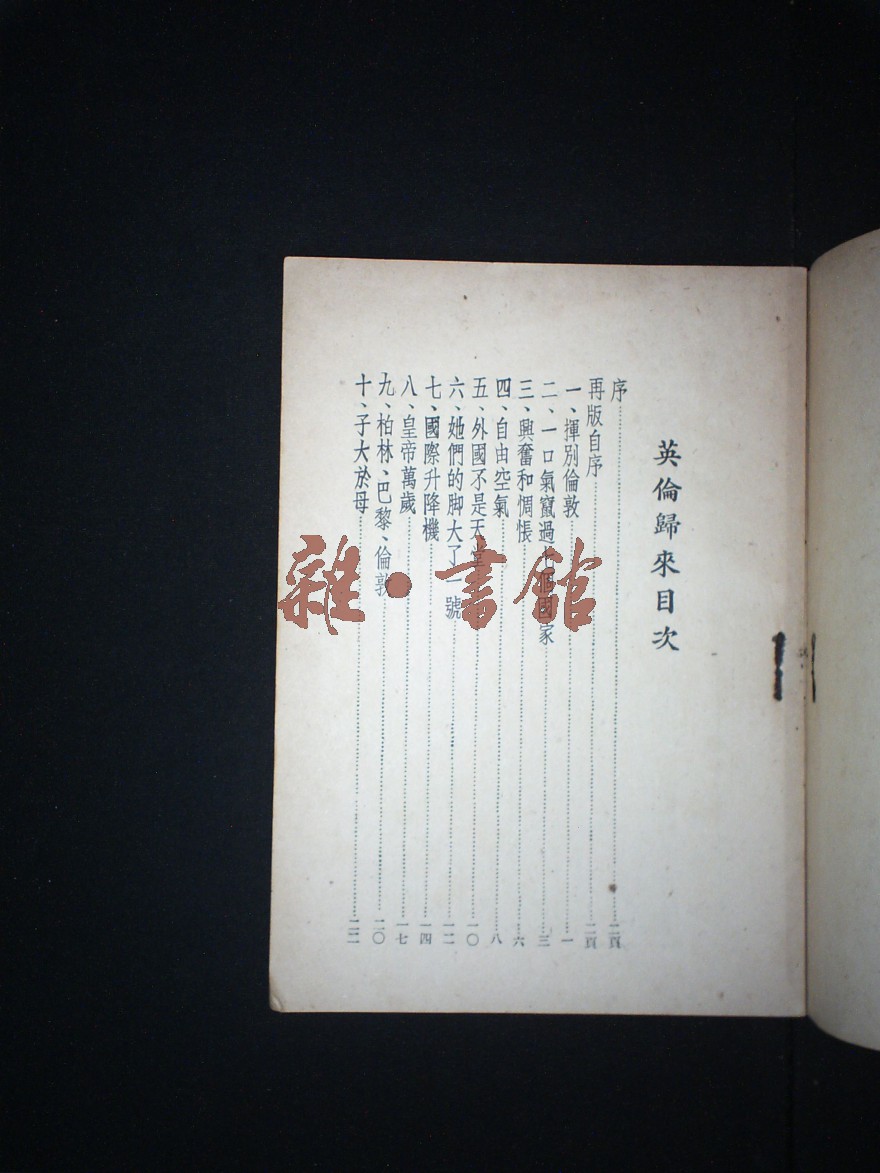 英倫歸來目次
序……二頁
再版自序……二頁
一、揮別倫敦……一
二、一口氣竄過七個國家……三
三、興奮和惆悵……六
四、自由空氣……八
五、外國不是天堂……一〇
六、她們的脚大了一號……一二
七、國際升降機……一四
八、皇帝萬歲……一七
九、柏林、巴黎、倫敦……二〇
十、子大於母……二二
雜·書館